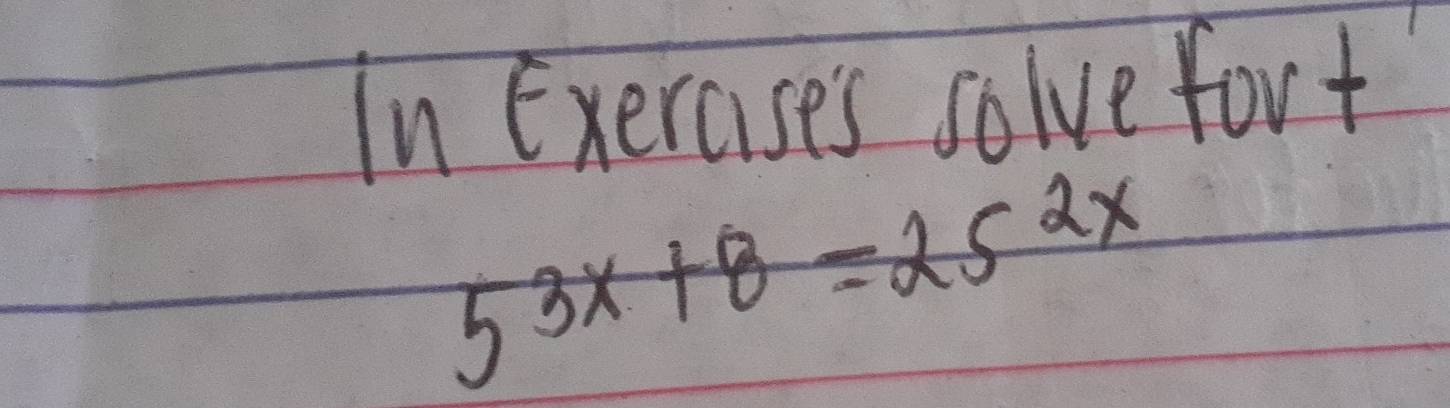 In Exercises solve for t
5^{3x+8} = 25^{2x}